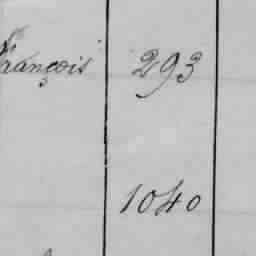 François 293
1040